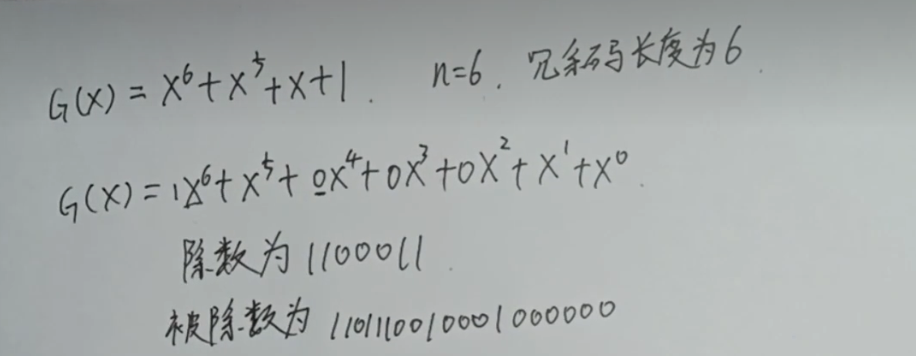 G(X) = X⁶+X⁵+X+1. n=6. 冗余码长度为6.
G(X) = 1X⁶+X⁵+0X⁴+0X³+0X²+X¹+X⁰.
除数为 1100011.
被除数为 1101110010001000000